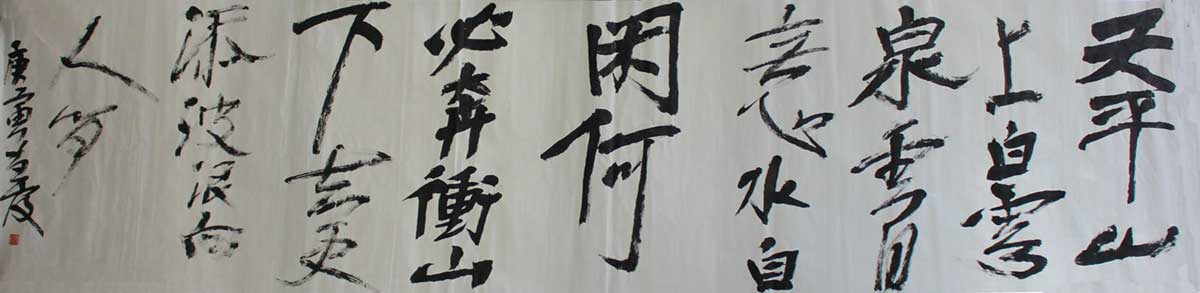 天平山
上白雲
泉雲自
无心水自
閑何
必奔衝山
下去更
添波浪向
人间
庚寅